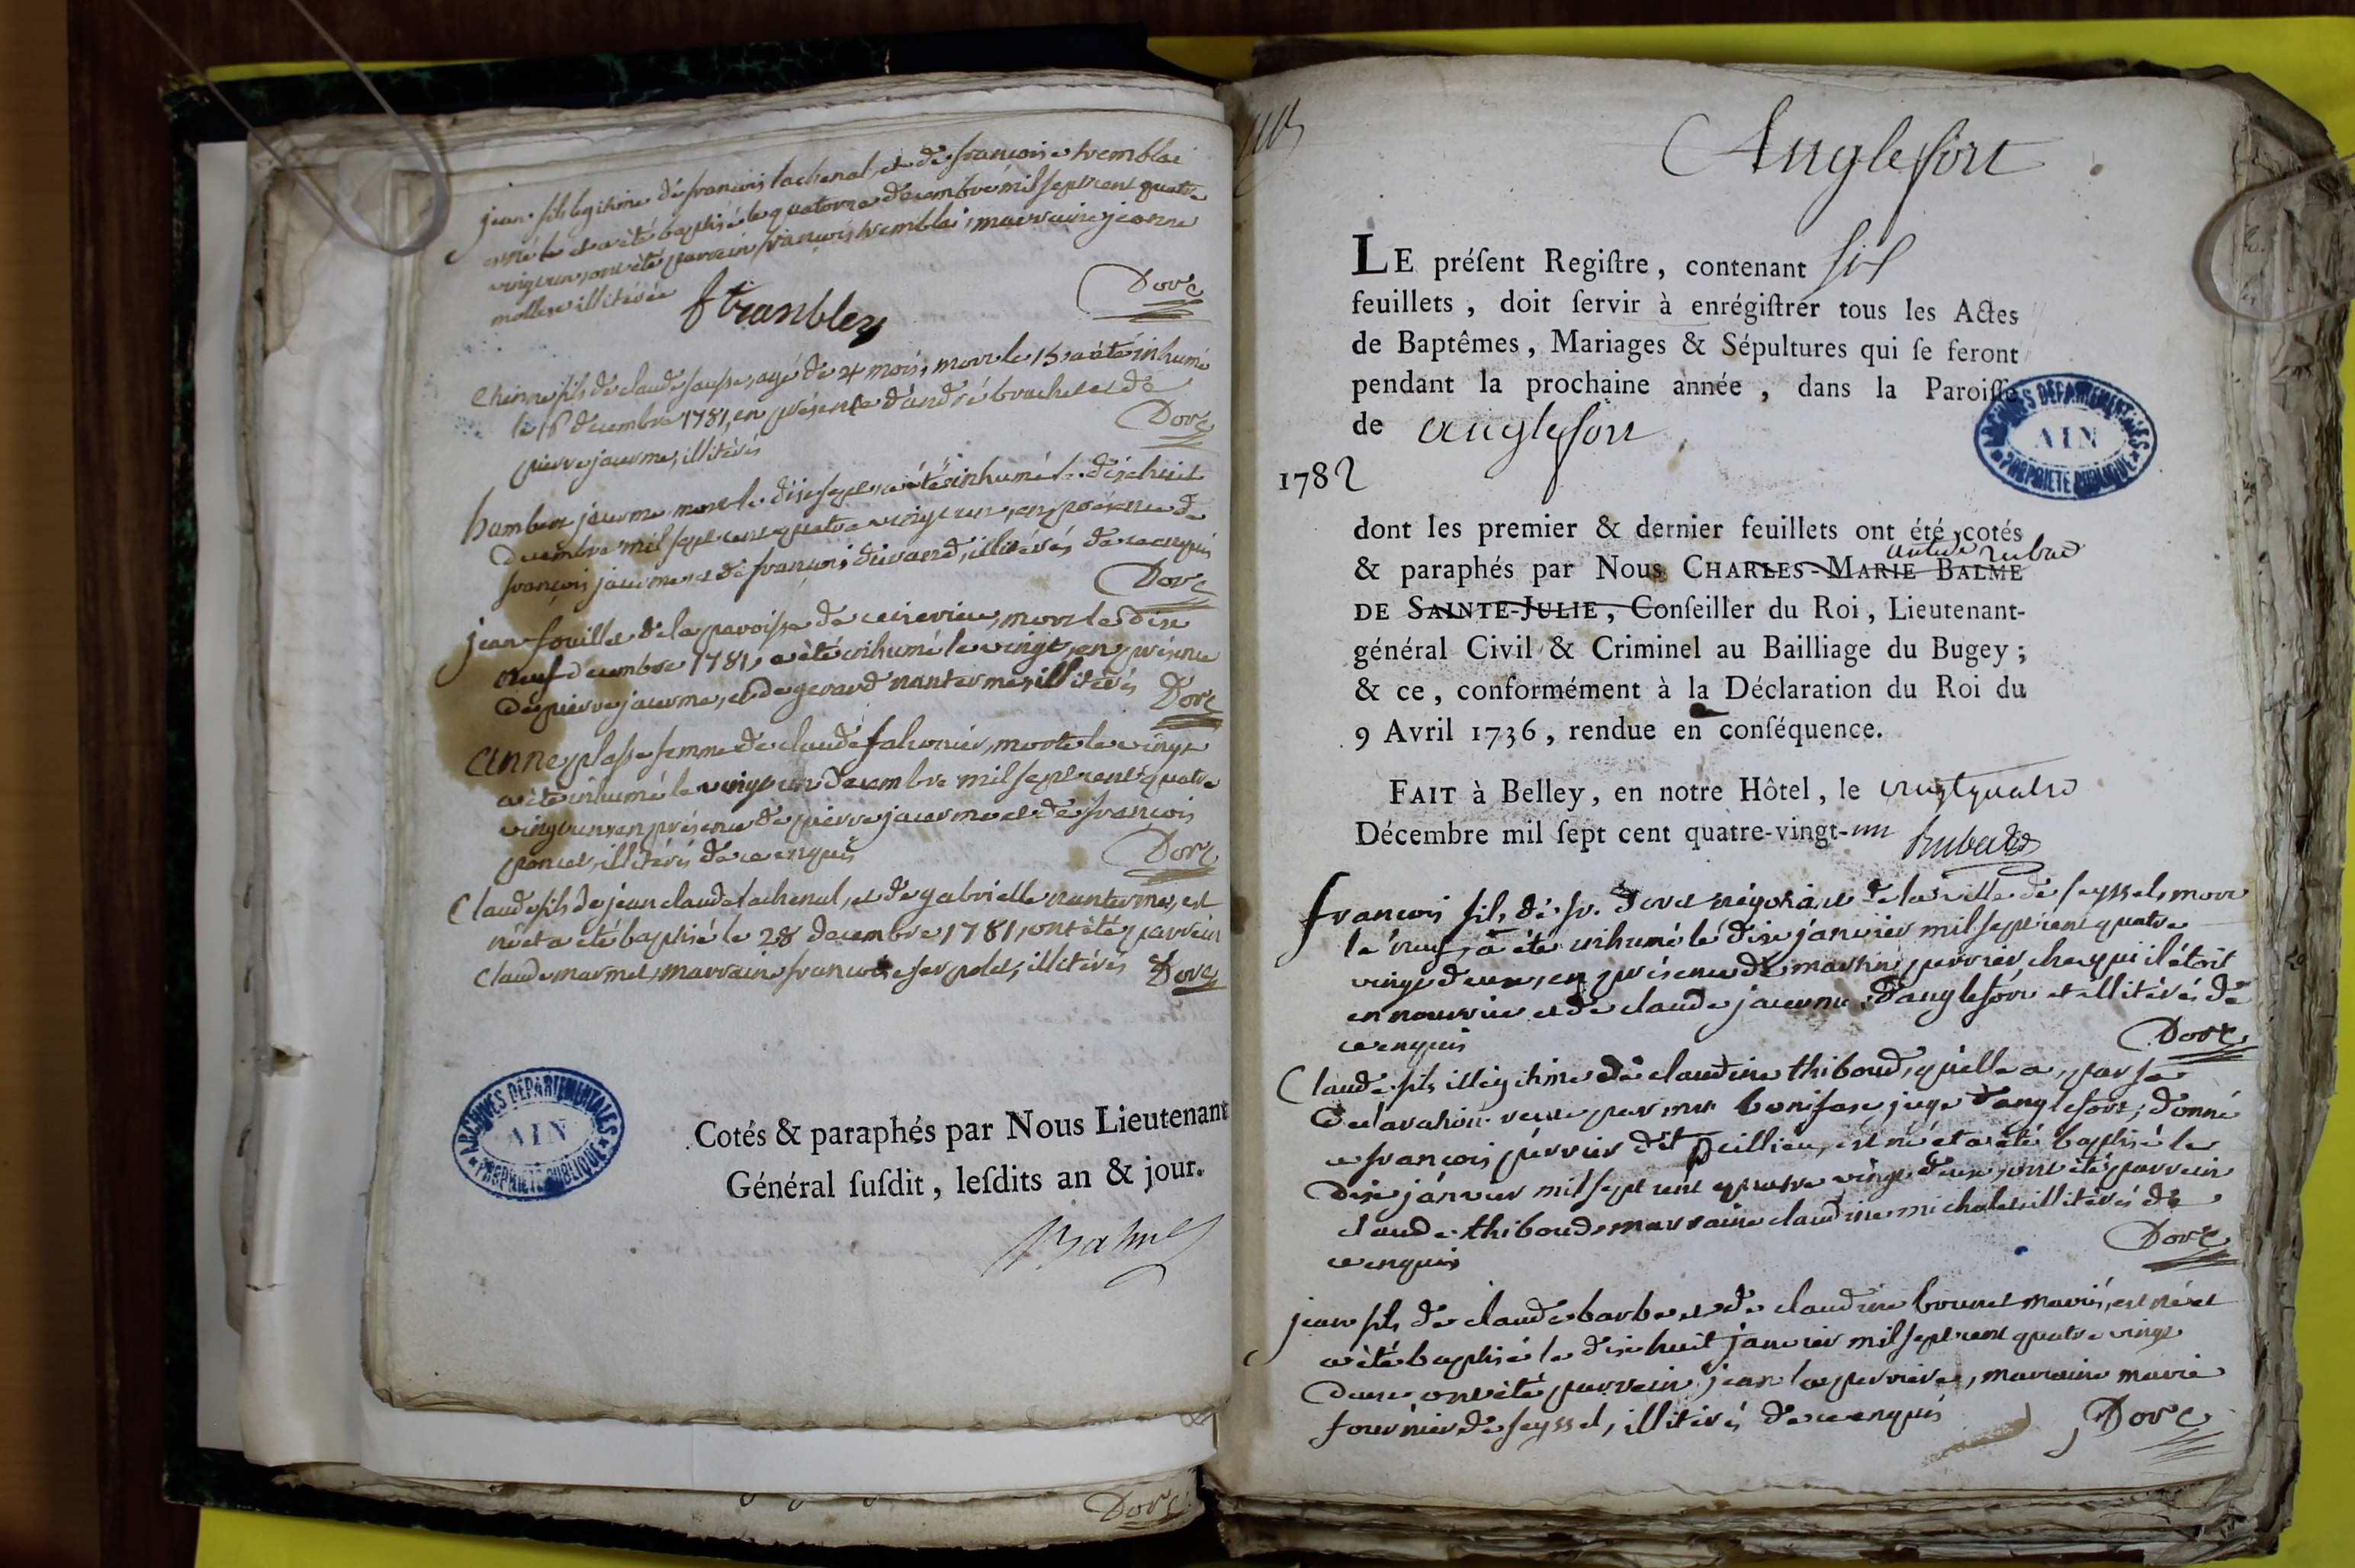 jean fils legitime de françois lachenal, et de françoise tremblai
est né le et a été baptisé le quatorze decembre mil sept cent quatre
vingt un, ont été parrein françois tremblai, marraine jeanne
mollex illitérée
f tranbley
Dorc
etienne fils de claude jausse, agé de 4 mois, mort le 15 a été inhumé
le 16 decembre 1781, en présence d'andré brachet et de
pierre jacerme, illitérés
Dorc
humbert jacerme mort le dix sept, a été inhumé le dix huit
decembre mil sept cent quatre vingt un, en présence de
françois jacerme et de françois durand, illitérés de ce enquis
Dorc
jean fouillet de la paroisse de ceirerieu, mort le dix
neuf decembre 1781, a été inhumé le vingt, en présence
de pierre jacerme, et de gerard nanterme, illitérés Dorc
anne plasse femme de claude falconier, morte le vingt
a été inhumé le vingt un decembre mil sept cent quatre
vingt un, en présence de pierre jacerme et de françois
poncet, illitérés de ce enquis
Dorc
Claude fils de jean claude lachenal, et de gabrielle nanterme, est
né et a été baptisé le 28 decembre 1781, ont été parrein
Claude marmet, marraine françoise serpolet, illitérés Dorc
ARCHIVES DÉPARTEMENTALES
AIN
PROPRIETÉ PUBLIQUE
Cotés & paraphés par Nous Lieutenant
Général ſuſdit, leſdits an & jour.
Balme
Dorc
Anglefort
LE préſent Regiſtre, contenant six
feuillets, doit ſervir à enrégiſtrer tous les Actes
de Baptêmes, Mariages & Sépultures qui ſe feront
pendant la prochaine année, dans la Paroiſſe
de anglefort
ARCHIVES DÉPARTEMENTALES
AIN
PROPRIETÉ PUBLIQUE
1782
dont les premier & dernier feuillets ont été cotés
& paraphés par Nous CHARLES-MARIE BALME
DE SAINTE-JULIE, Conſeiller du Roi, Lieutenant-
général Civil & Criminel au Bailliage du Bugey;
& ce, conformément à la Déclaration du Roi du
9 Avril 1736, rendue en conſéquence.
FAIT à Belley, en notre Hôtel, le vingtquatre
Décembre mil ſept cent quatre-vingt-un
françois fils de sr. Dorct négotiant de la ville de seyssel, mort
le neuf, a été inhumé le dix janvier mil sept cent quatre
vingt deux, en présence de martin perrier, chez qui il étoit
en nourrice et de claude jacerme d'anglefort et illitérés de
ce enquis
Dorc
Claude fils illégitime de claudine thiboud, qu'elle a, par sa
declaration reçue par mr bonifax juge d'anglefort, donné
a françois perrier dit peillieu, est né et a été baptisé le
dix janvier mil sept cent quatre vingt deux, ont été parrein
claude thiboud, marraine claudine michalet, illitérés de
ce enquis
Dorc
jean fils de claude barbe et de claudine brunet mariés, est né et
a été baptisé le dix huit janvier mil sept cent quatre vingt
deux ont été parrein jean laperriere, marraine marie
fournier de seyssel, illitérés de ce enquis
Dorc